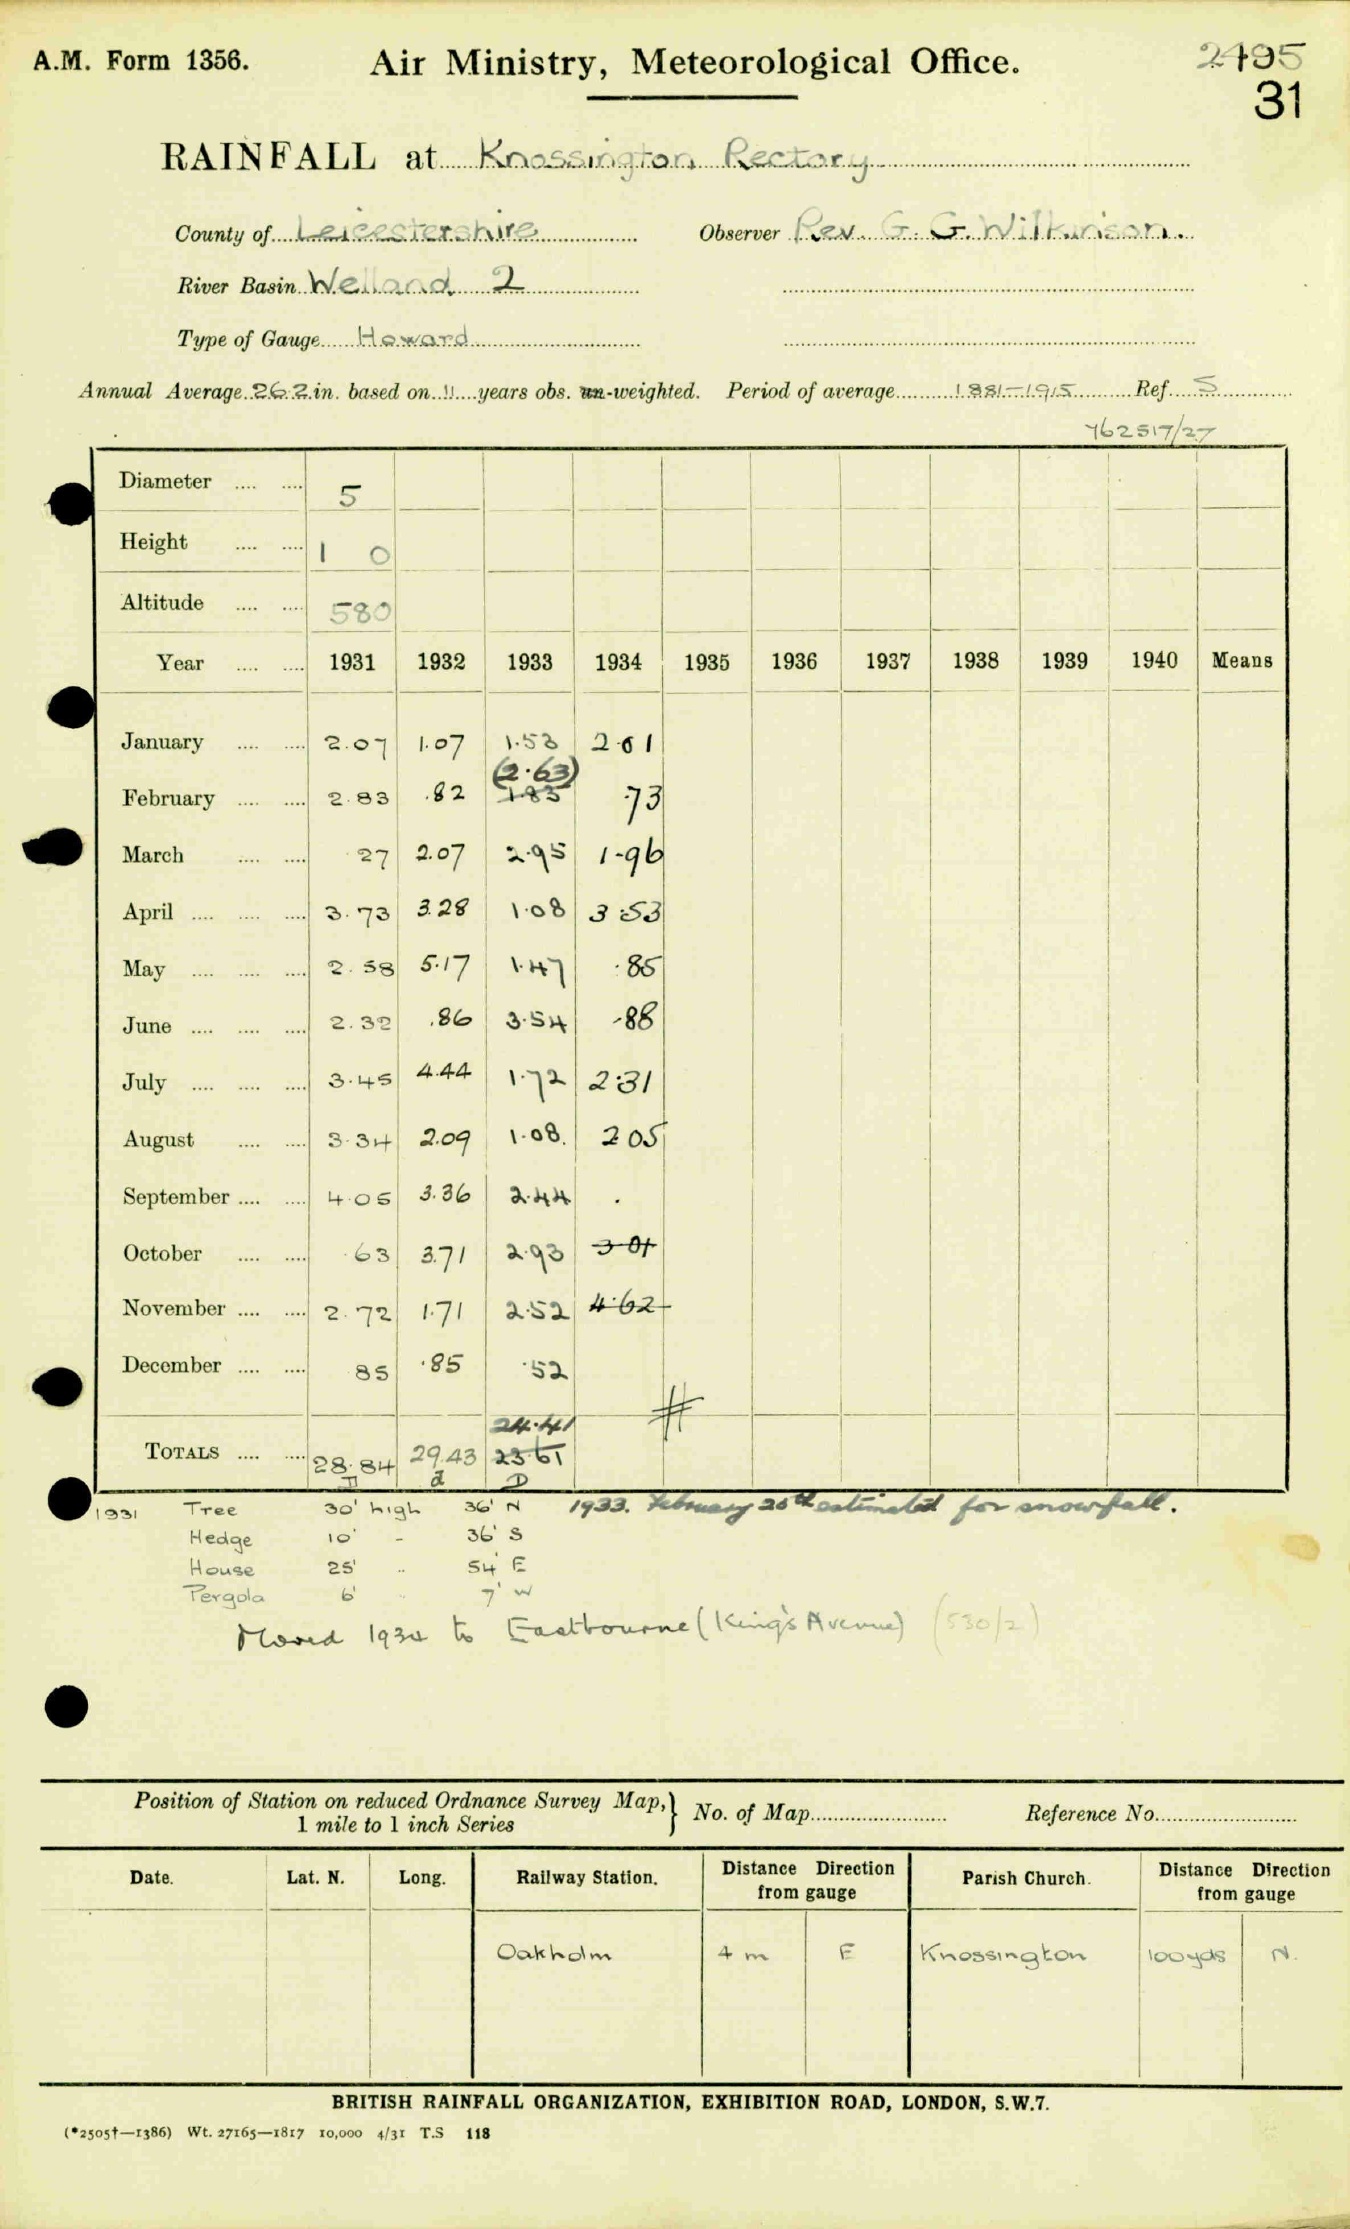 A.M. Form 1356.
Air Ministry, Meteorological Office.
2495
31
RAINFALL at Knossington Rectory
County of Leicestershire Observer Rev. G. G. Wilkinson.
River Basin Welland 2
Type of Gauge Howard
Annual Average 26.2 in. based on 11 years obs. un-weighted. Period of average 1881-1915 Ref. S
762517/27
Diameter 5
Height 1 0
Altitude 580
Year 1931 1932 1933 1934 1935 1936 1937 1938 1939 1940 Means
January 2.07 1.07 1.53 2.01
(2.63)
February 2.83 .82 1.83 .73
March 27 2.07 2.95 1.96
April 3.73 3.28 1.08 3.53
May 2.58 5.17 1.47 .85
June 2.32 .86 3.54 .88
July 3.45 4.44 1.72 2.31
August 3.34 2.09 1.08. 2 05
September 4.05 3.36 2.44 .
October .63 3.71 2.93 3 01
November 2.72 1.71 2.52 4.62
December 85 .85 .52
#
24.41
TOTALS 28.84 29.43 23.61
D d D
1931 Tree 30' high 36' N 1933. February 26th estimated for snowfall.
Hedge 10' - 36' S
House 25' .. 54' E
Pergola 6' .. 7' W
Moved 1934 to Eastbourne (King's Avenue) (530/2)
Position of Station on reduced Ordnance Survey Map,
1 mile to 1 inch Series } No. of Map Reference No.
Date. Lat. N. Long. Railway Station. Distance Direction from gauge Parish Church. Distance Direction from gauge
Oakholm 4 m E Knossington 100yds N.
BRITISH RAINFALL ORGANIZATION, EXHIBITION ROAD, LONDON, S.W.7.
(*2505†—1386) Wt. 27165—1817 10,000 4/31 T.S 118